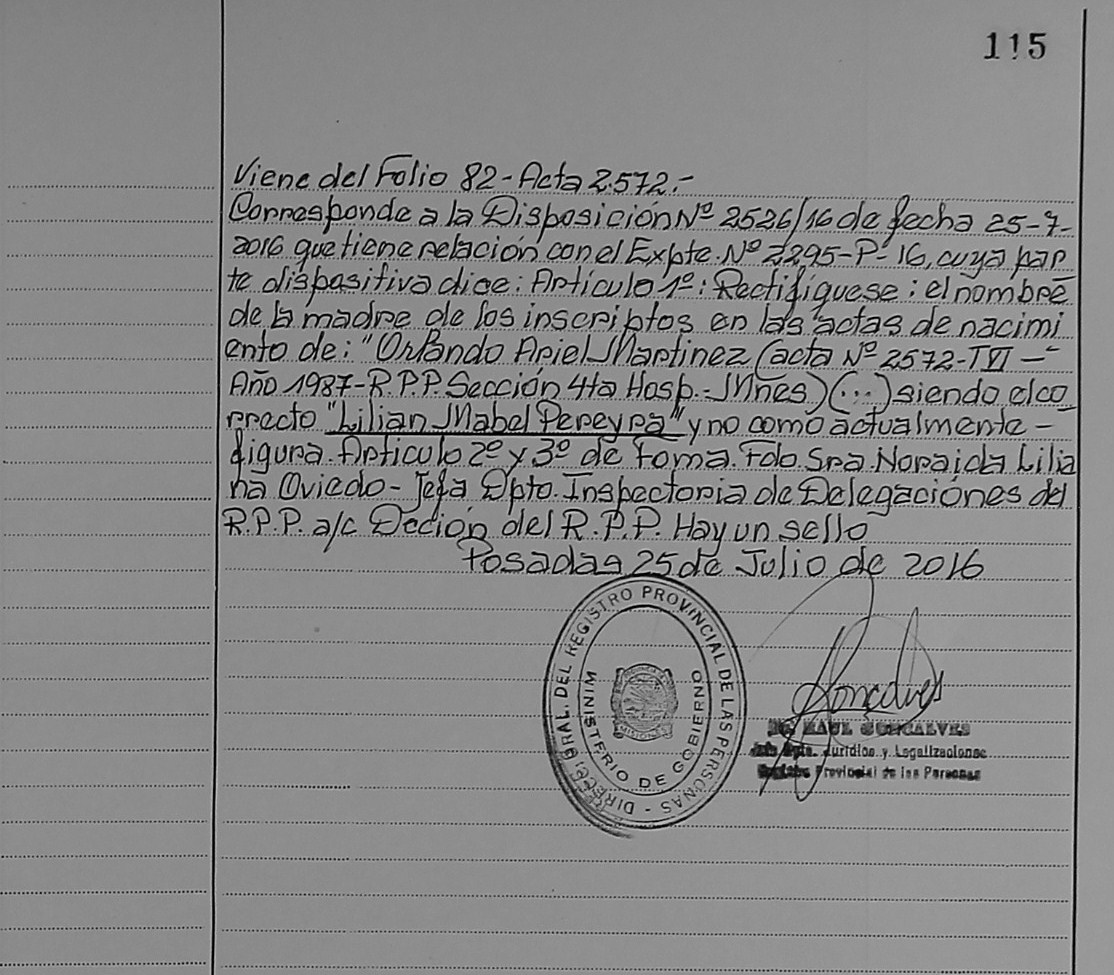 115
Viene del Folio 82-Acta 2.572.-
Corresponde a la Disposición Nº 2526/16 de fecha 25-7-
2016 que tiene relación con el Expte. Nº 2295-P-16, cuya par
te dispositiva dice: Artículo 1º: Rectifíquese: el nombre
de la madre de los inscriptos en las actas de nacimi
ento de: "Orlando Ariel Martinez (acta Nº 2572-TVI-
Año 1987-R.P.P. Sección 4ta Hosp.- Mnes) (...) siendo el co
rrecto "Lilian Mabel Pereyra" y no como actualmente -
figura. Articulo 2º y 3º de foma. Fdo. Sra. Noraida Lilia
na Oviedo - Jefa Dpto. Inspectoria de Delegaciones del
R.P.P. a/c Dcción del R.P.P. Hay un sello
Posadas 25 de Julio de 2016
DIRECC. GRAL. DEL REGISTRO PROVINCIAL DE LAS PERSONAS -
MINISTERIO DE GOBIERNO
Goncalves
RAUL GONCALVES
Jefe Dpto. Juridico y Legalizaciones
Registro Provincial de las Personas